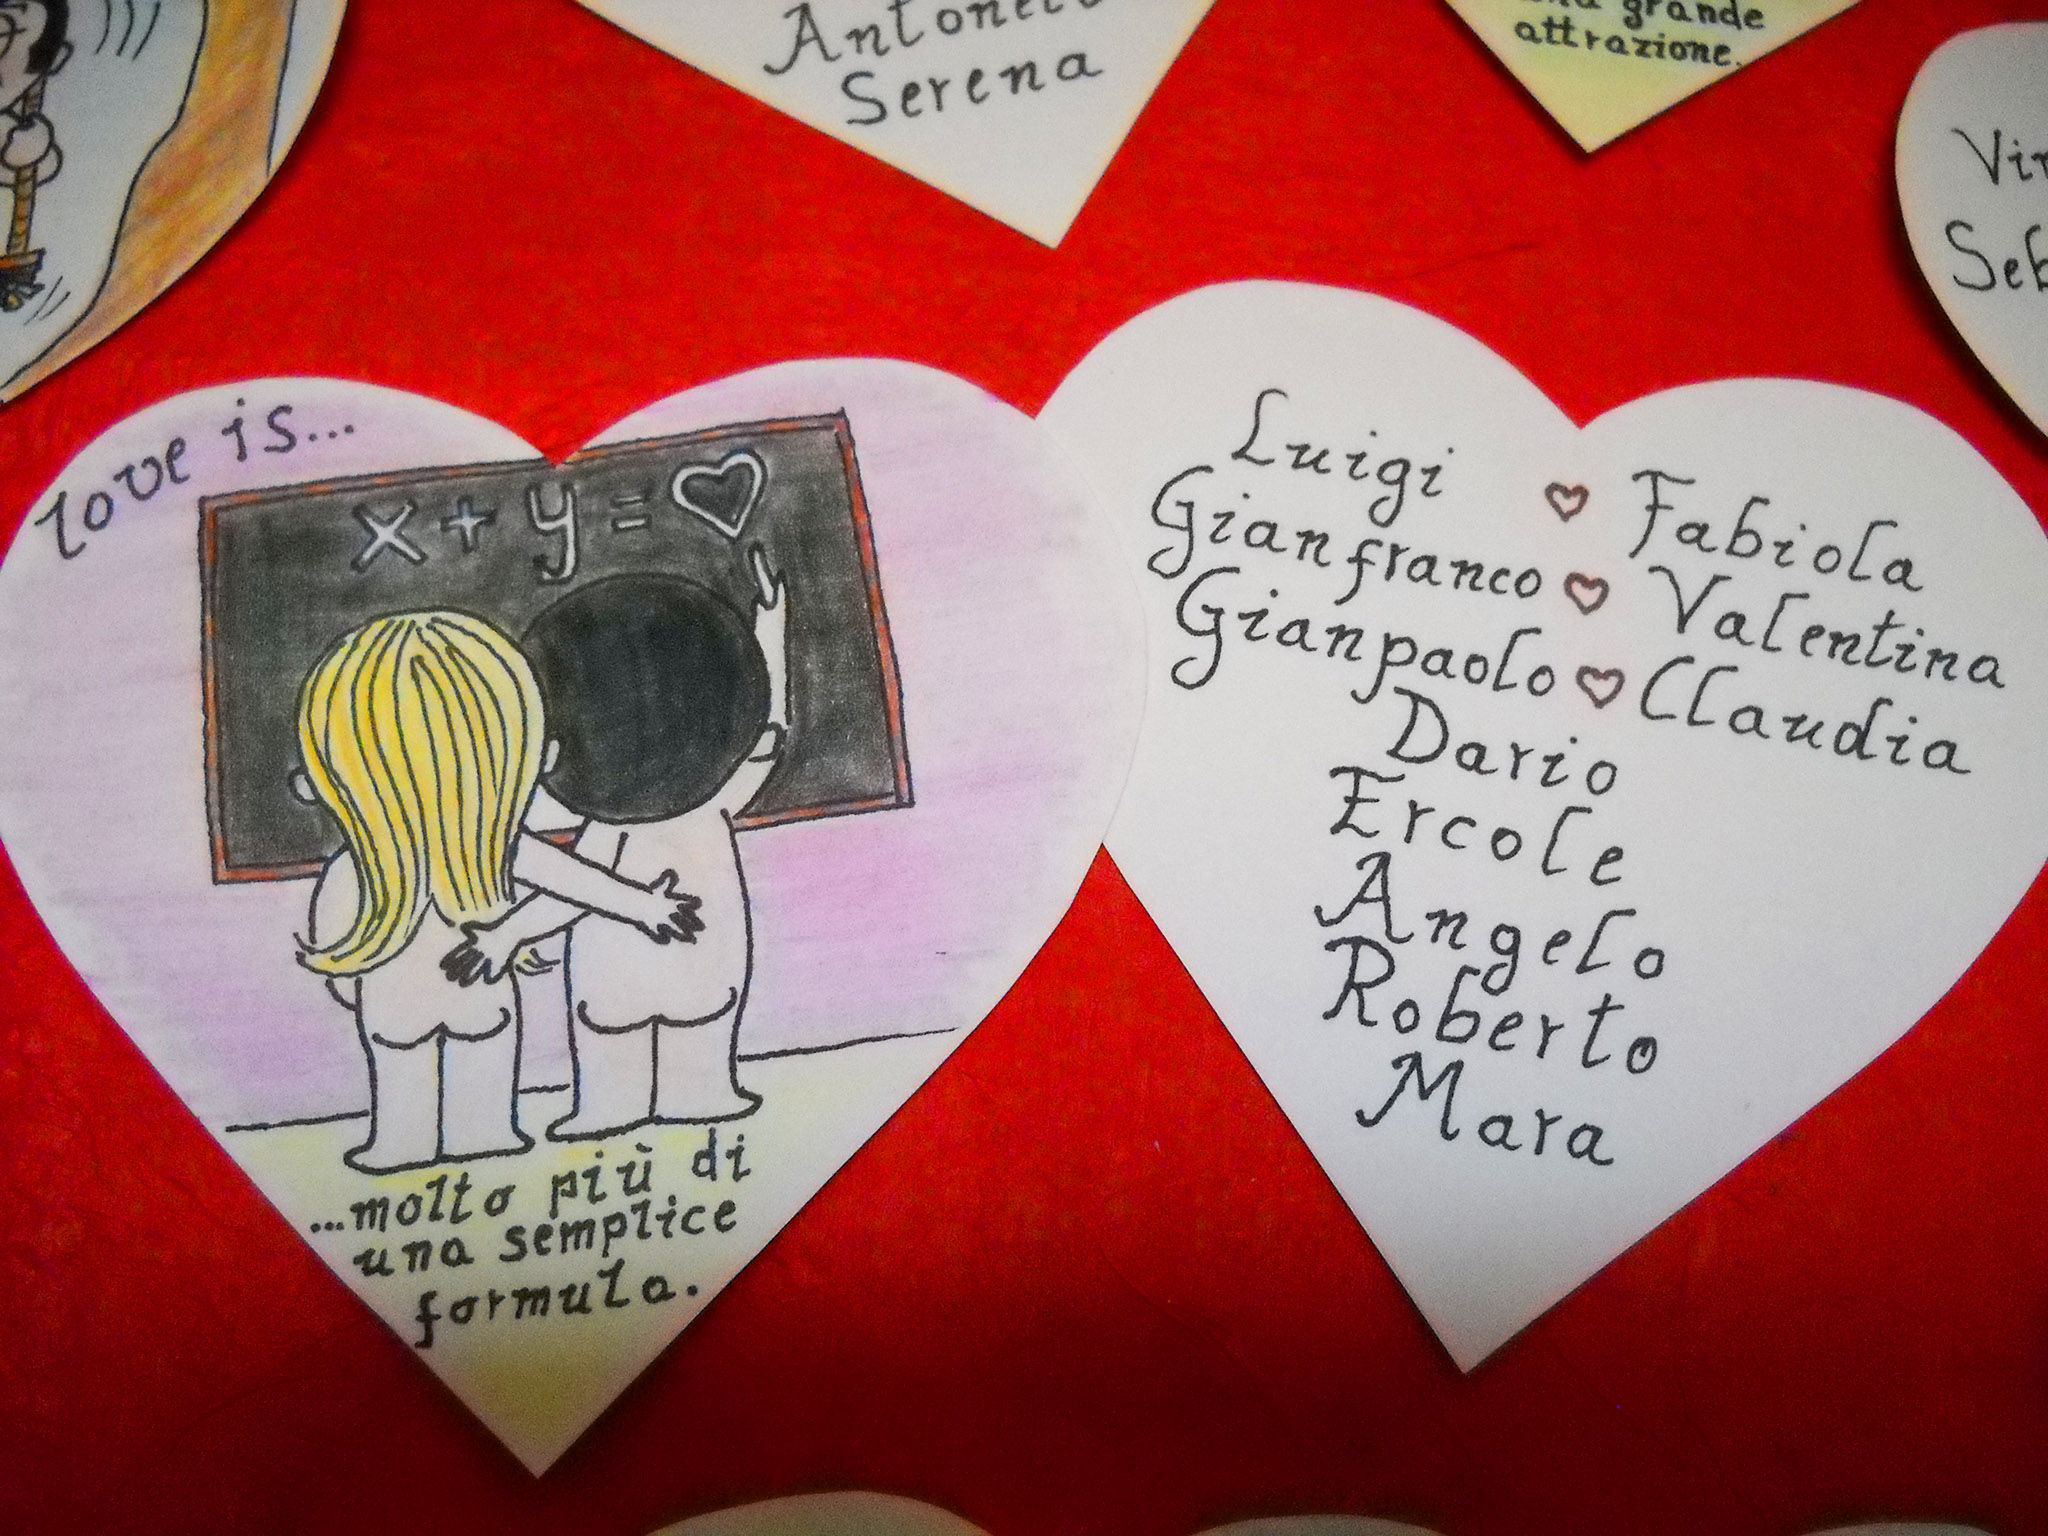 Serena
grande
attrazione.
love is...
x + y = ♡
...molto più di
una semplice
formula.
Luigi ♡ Fabiola
Gianfranco ♡ Valentina
Gianpaolo ♡ Claudia
Dario
Ercole
Angelo
Roberto
Mara